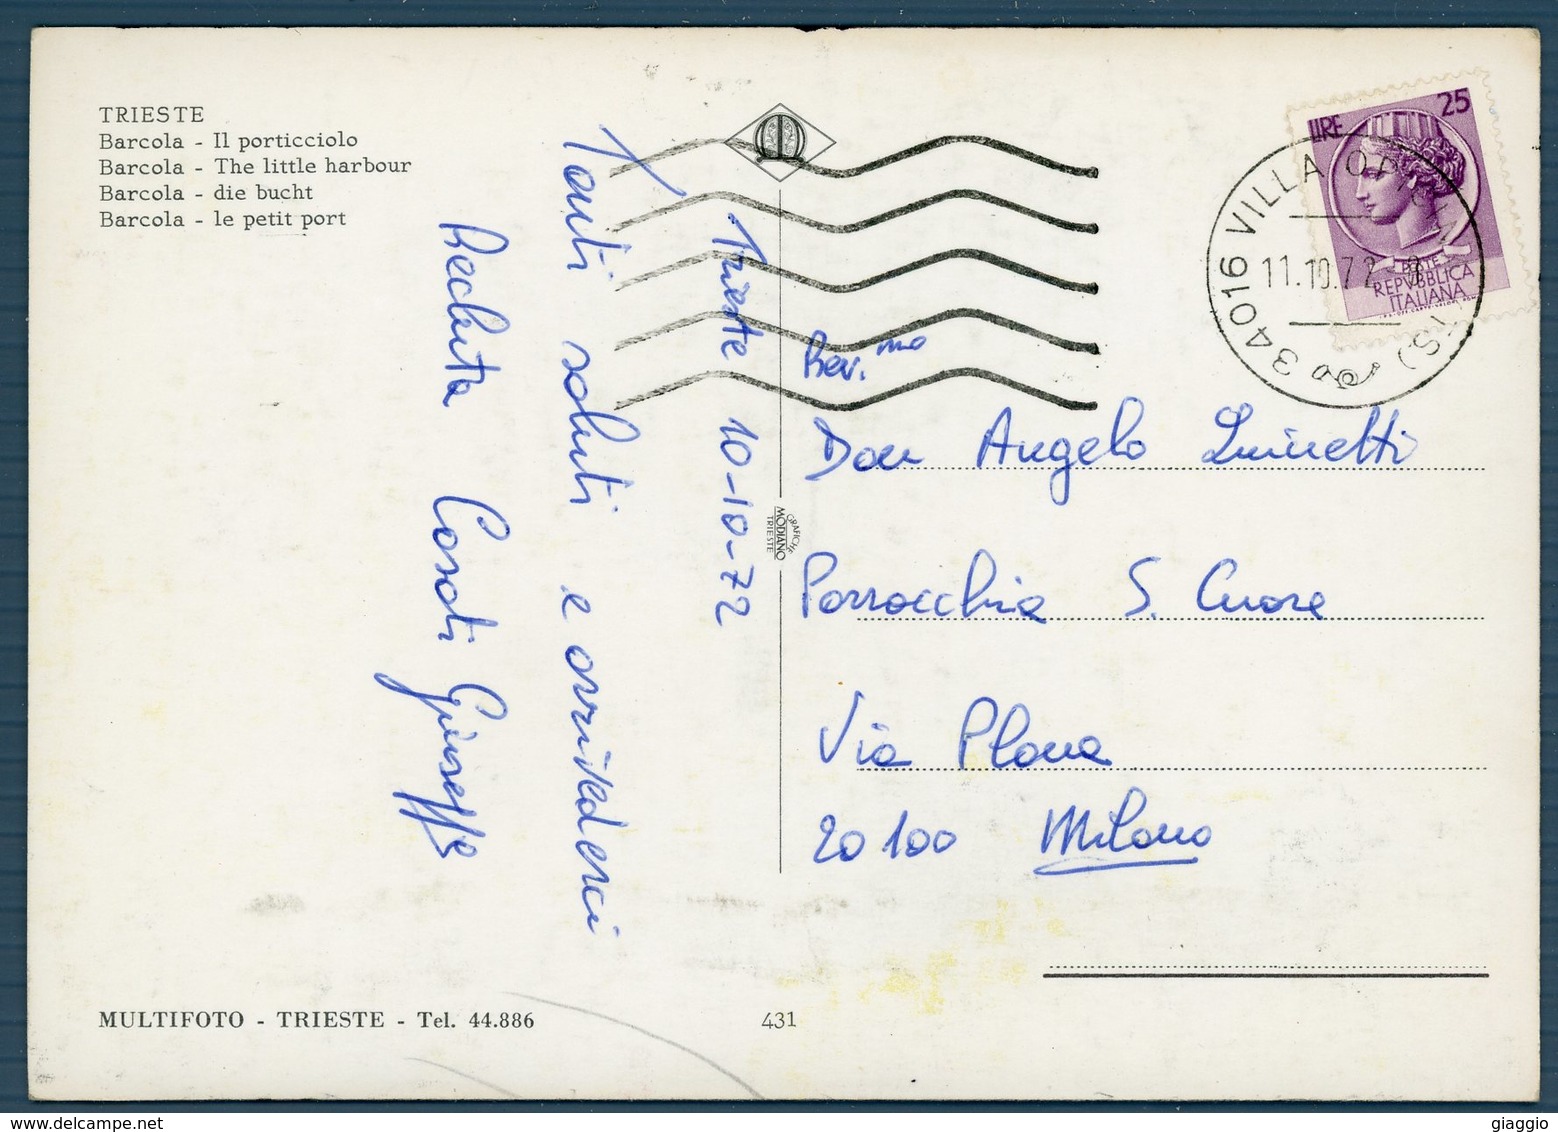 TRIESTE
Barcola - Il porticciolo
Barcola - The little harbour
Barcola - die bucht
Barcola - le petit port
Trieste 10-10-72
Tanti saluti e arrivederci
Recluta Casati Giuseppe
LIRE 25
POSTE
REPVBBLICA
ITALIANA
34016 VILLA OPICINA (TS)
11.10.72
Rev.mo
Don Angelo
Parrocchia S. Cuore
Via Plana
20100 Milano
GRAFICHE
MODIANO
TRIESTE
MULTIFOTO - TRIESTE - Tel. 44.886
431
giaggio